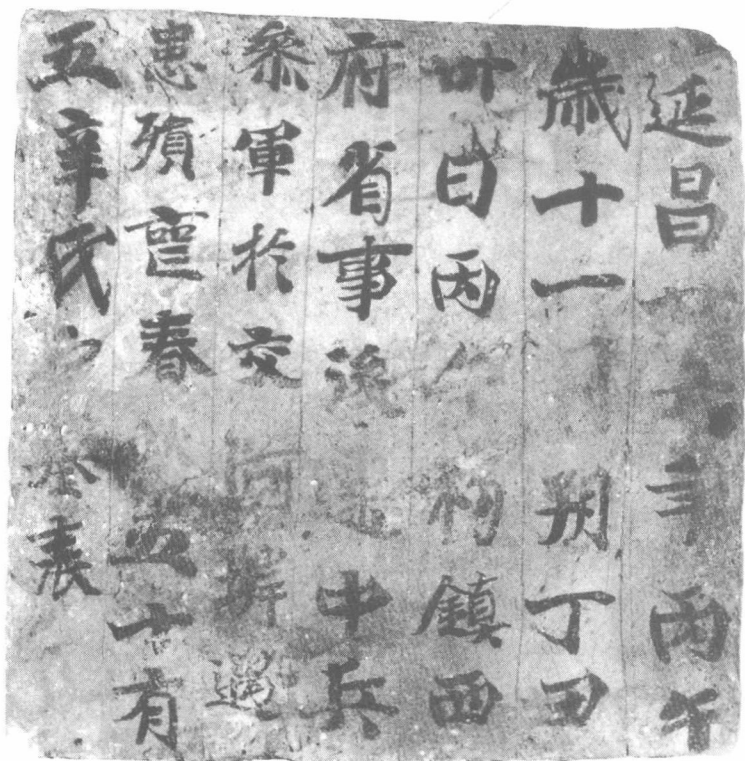 延昌年丙午
歲十一朔丁丑
卅日丙初鎮西
府省事後中兵
叅軍於交河遇
患殞喪春五十有
五辛氏表